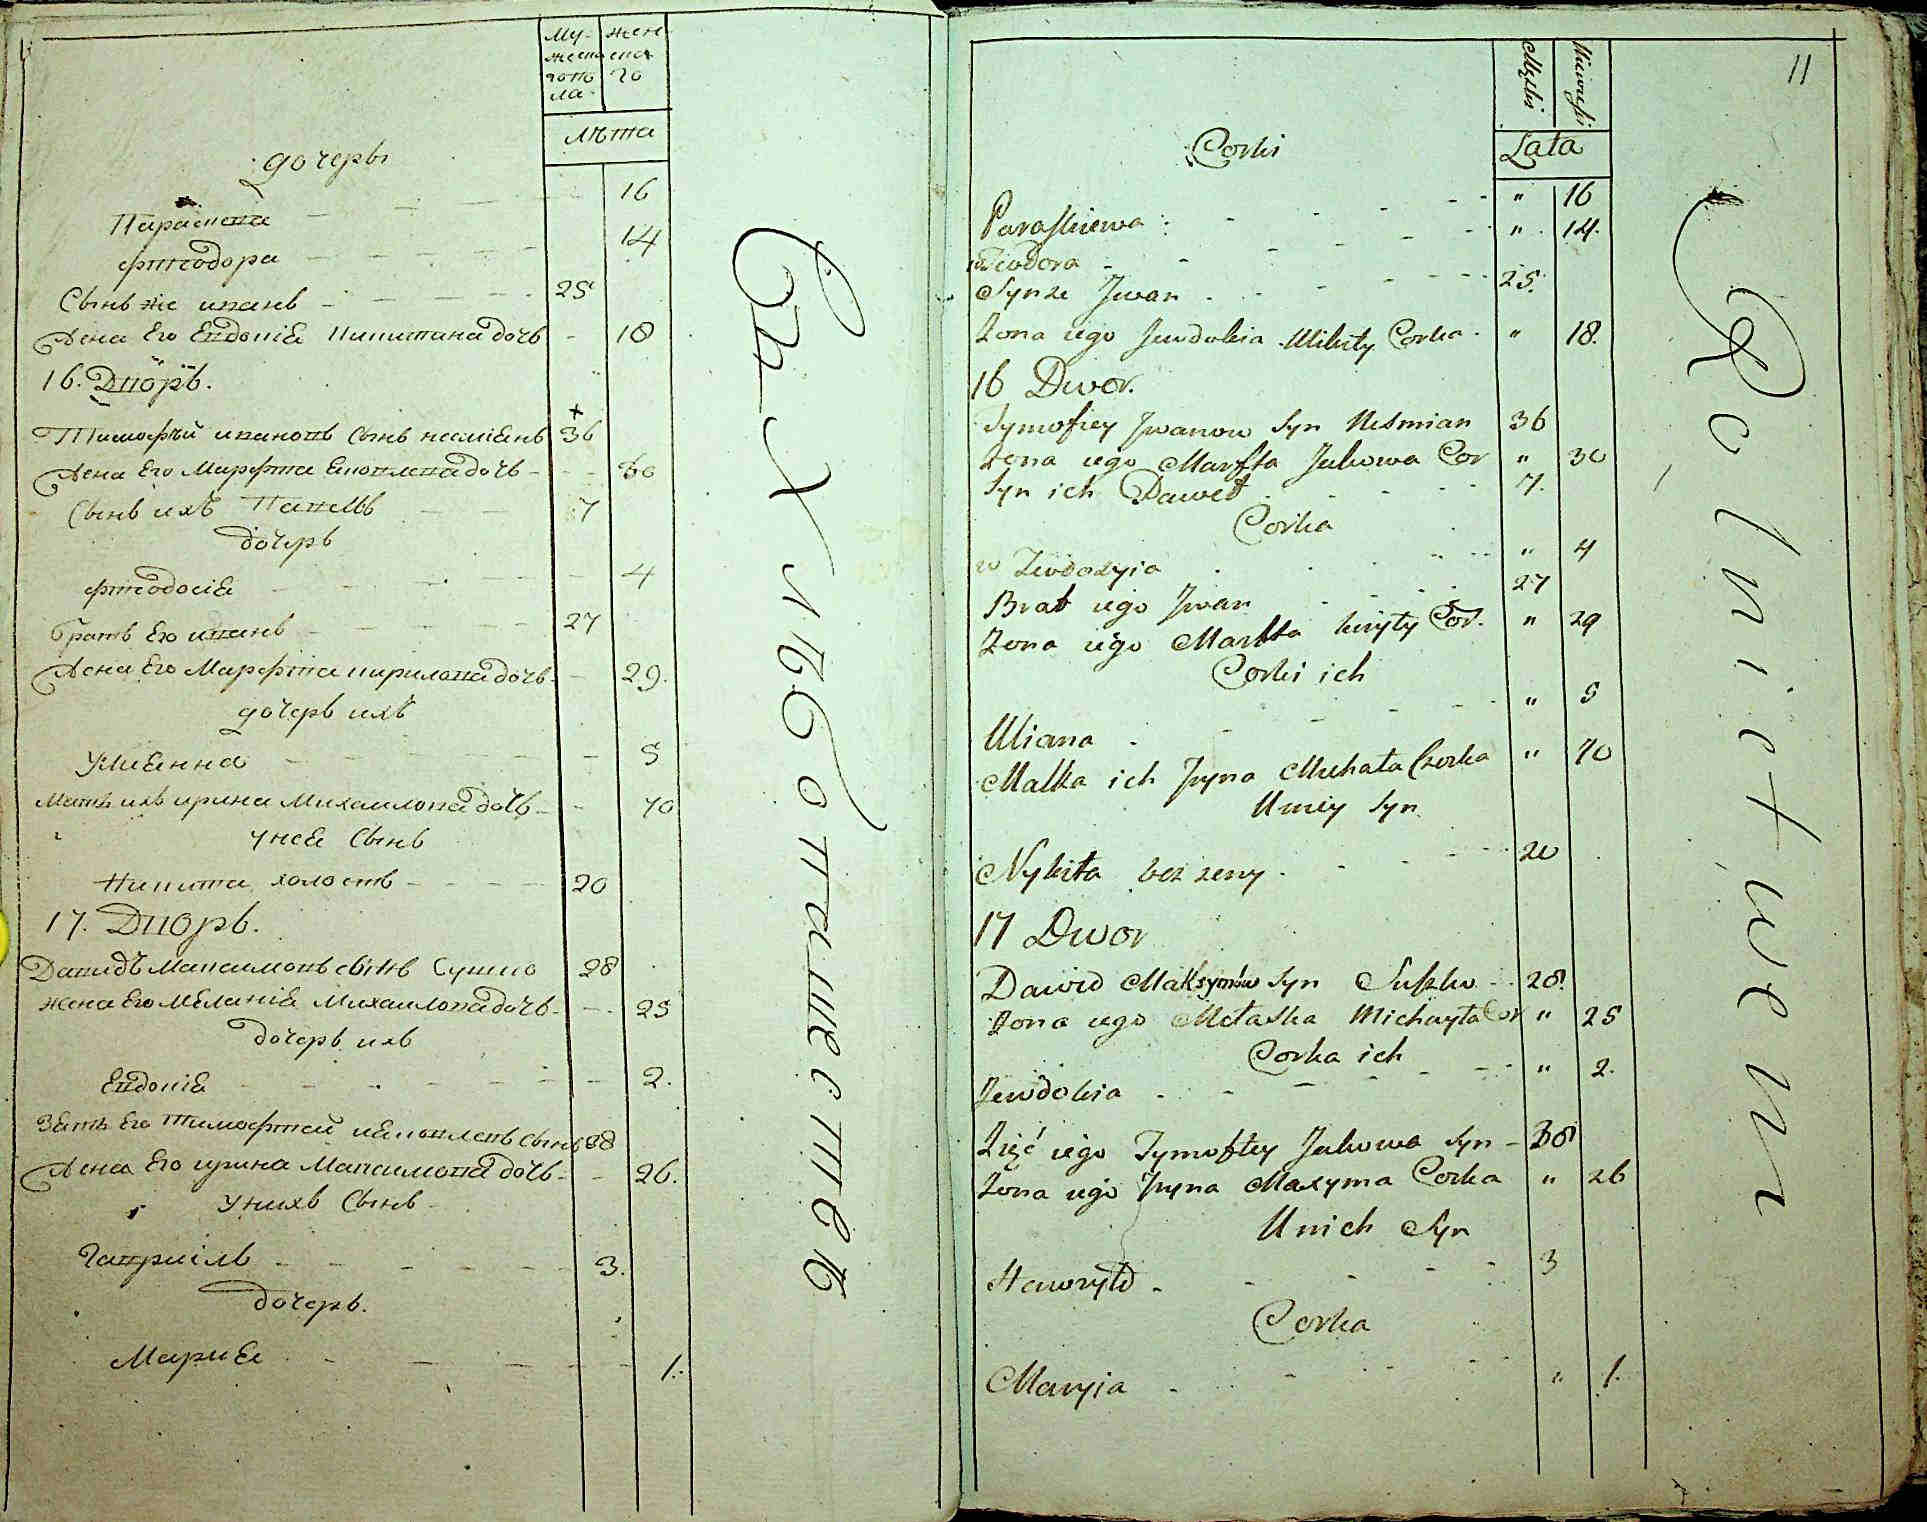 Мужеска пола
женска го
лѣта
дочеры
Параскева 16
Фтеодора 14
Сынъ же иванъ 25
Жена Его Евдокія Никитина дочь 18
16. Дворъ.
Тимофѣй ивановъ сынъ несміянъ 36
Жена Его Марфта Яковлева дочь 30
Сынъ ихъ Павелъ 7
дочерь
Фтеодосія 4
братъ Его иванъ 27
Жена Его Марфта кирилова дочь 29.
дочерь ихъ
Улиянна 5
Мать ихъ ирина Михаилова дочь 70
у нея Сынъ
Никита холостъ 20
17. Дворъ.
Давидъ Максимовъ сынъ Сушко 28
жена Его Меланія Михаилова дочь 25
дочерь ихъ
Евдокія 2.
Зять Его Тимофтей иаковлевъ Сынъ 38
Жена Его ирина Максимова дочь 26.
У нихъ Сынъ
Гавріилъ 3.
дочерь.
Мария 1.
Съ Хлѣбопашествѣ
11
Męzkie
Niewieski
Lata
Corki
Paraskiewa " 16
Teodora " 14.
Synze Jwan 25.
Zona iego Jewdokia Mikity Corka " 18.
16 Dwor.
Tymofiey Jwanow Syn Nesmian 36
Zona iego Marfta Jakowa Cor " 30
Syn ich Paweł 7.
Corka
Teodozyia " 4
Brat iego Jwan 27
Zona iego Marfta kiryły Cor. " 29
Corki ich
Uliana " 5
Matka ich Jryna Michała Corka " 70
Uniey Syn
Nykita bez zeny 20
17 Dwor
Dawid Maksymów Syn Suszko 28.
Zona iego Mełaszka Michayła Cor " 25
Corka ich
Jewdokia " 2.
Zięć iego Tymoftey Jakowa Syn 38
Zona iego Jryna Maxyma Corka " 26
Unich Syn
Hawryło 3
Corka
Maryia " 1.
Rolnictwem